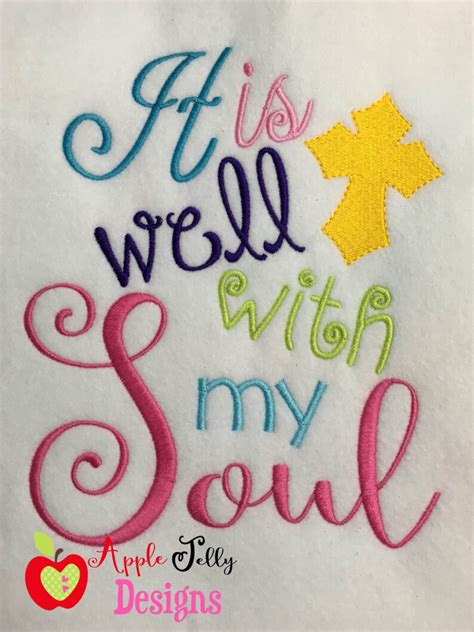 It is
well
with
my
Soul
Apple Jelly
Designs